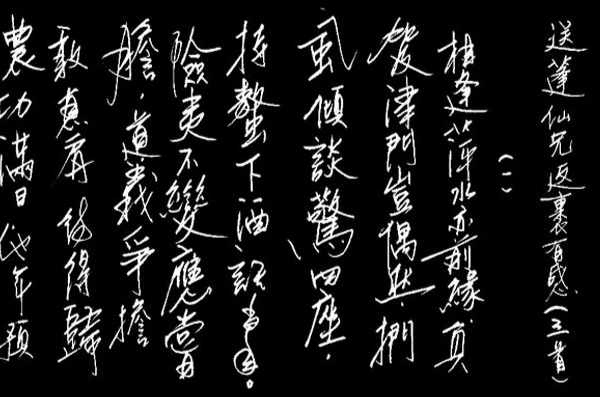 送蓬仙兄返裏有感(三首)
(一)
相逢萍水亦前緣,負
笈津門豈偶然.捫
虱傾談驚四座.
持螯下酒話當年。
險夷不變應嘗
膽.道義爭擔
敢息肩.待得歸
農功滿日他年預